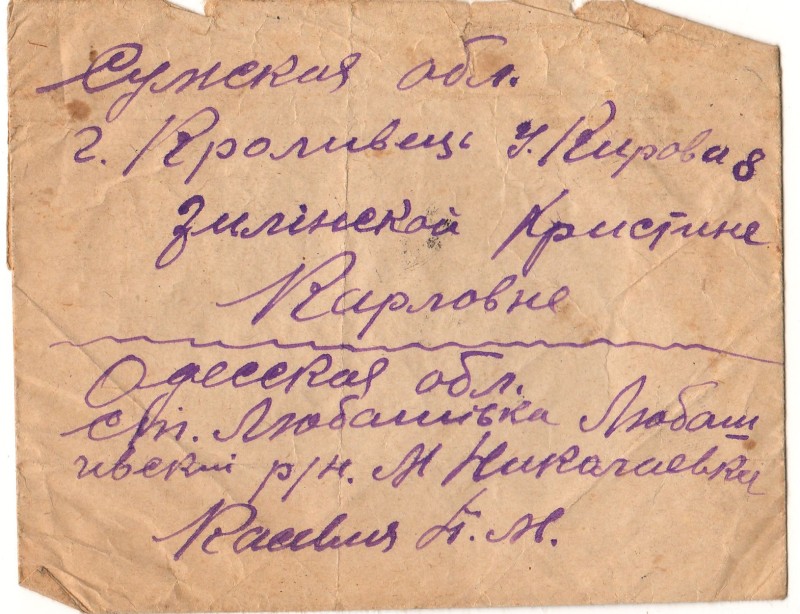 Сумская обл.
г. Кроливець У. Кирова 8
Зилінской Кристине
Карловне
Одесская обл.
Ст. Любашівка Любаш
івский р/н. М Николаевка
П. М.